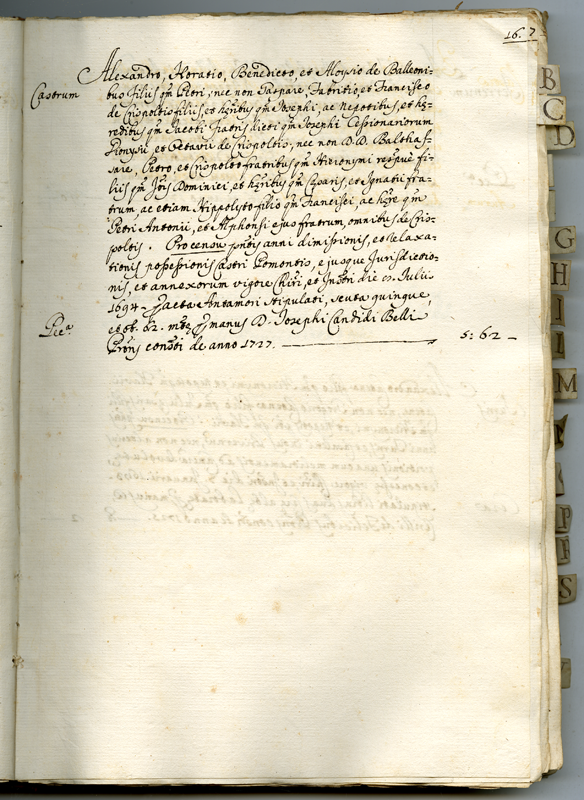 16. 7
Castrum
Alexandro, Horatio, Benedicto, et Aloysio de Balleoni-
bus filiis qm̄ Petri, nec non Gaspare, Fabritio, et Francisco
de Crispoltis filiis, et hęr̄ibus qm̄ Josephi, ac Nepotibus, et hę-
redibus qm̄ Jacobi fratris dicti qm̄ Josephi Cessionariorum
Dionysii, et Octavii de Crispoltis, nec non D. D. Balthas-
sare, Petro, et Crispolto fratribus qm̄ Hieronymi fi-
liis qm̄ Dominici, et hęr̄ibus qm̄ Cęsaris, et Ignatii fra-
trum, ac etiam Hippolyto filio qm̄ Francisci, ac hęr̄e qm̄
Petri Antonii, et Alphonsi ejus fratrum, omnibus de Cris-
poltis. Pro censu pn̄tis anni dimissionis, et relaxa-
tionis possessionis Castri Pomontis, ejusque Jurisdictio-
nis, et annexorum vigore Chir̄i, et die Julii
1694 acta Antamori stipulati, scuta quinque,
et ob. 62. mtę manus D. Josephi Candidi Belli
de anno 1727.
5: 62
B
C
D
G
H
I
I
M
P
R
S